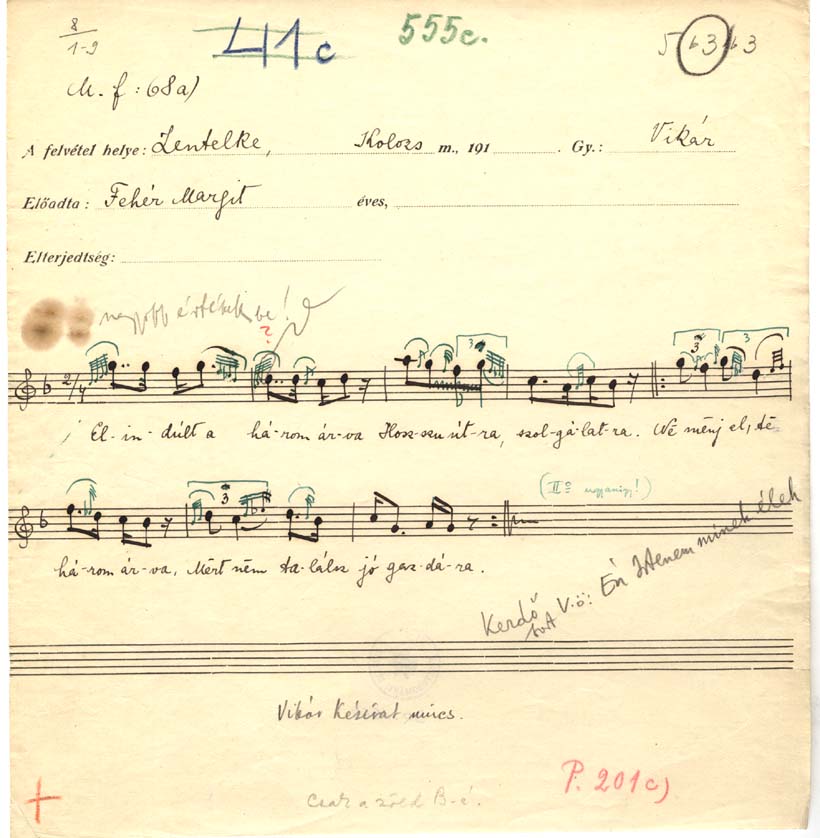 8
1-9
41c
555c.
5 ♭3 ♭3
M. f: 68a)
A felvétel helye: Zentelke, Kolozs m., 191 . Gy.: Vikár
Előadta: Fehér Margit éves,
Elterjedtség:
nagyobb értékek be!
?
2/4
3 3 3
El-in-dúlt a há-rom ár-va Hosz-szu út-ra, szol-gá-lat-ra. Né ménj el, té
3
(IIº ugyanígy!)
há-rom ár-va, Mért ném ta-lálsz jó gaz-dá-ra.
Kerdő V.ö: Én Istenem minek élek
Vikár Kézirat nincs.
P. 201c)
Csak a zöld B-é.